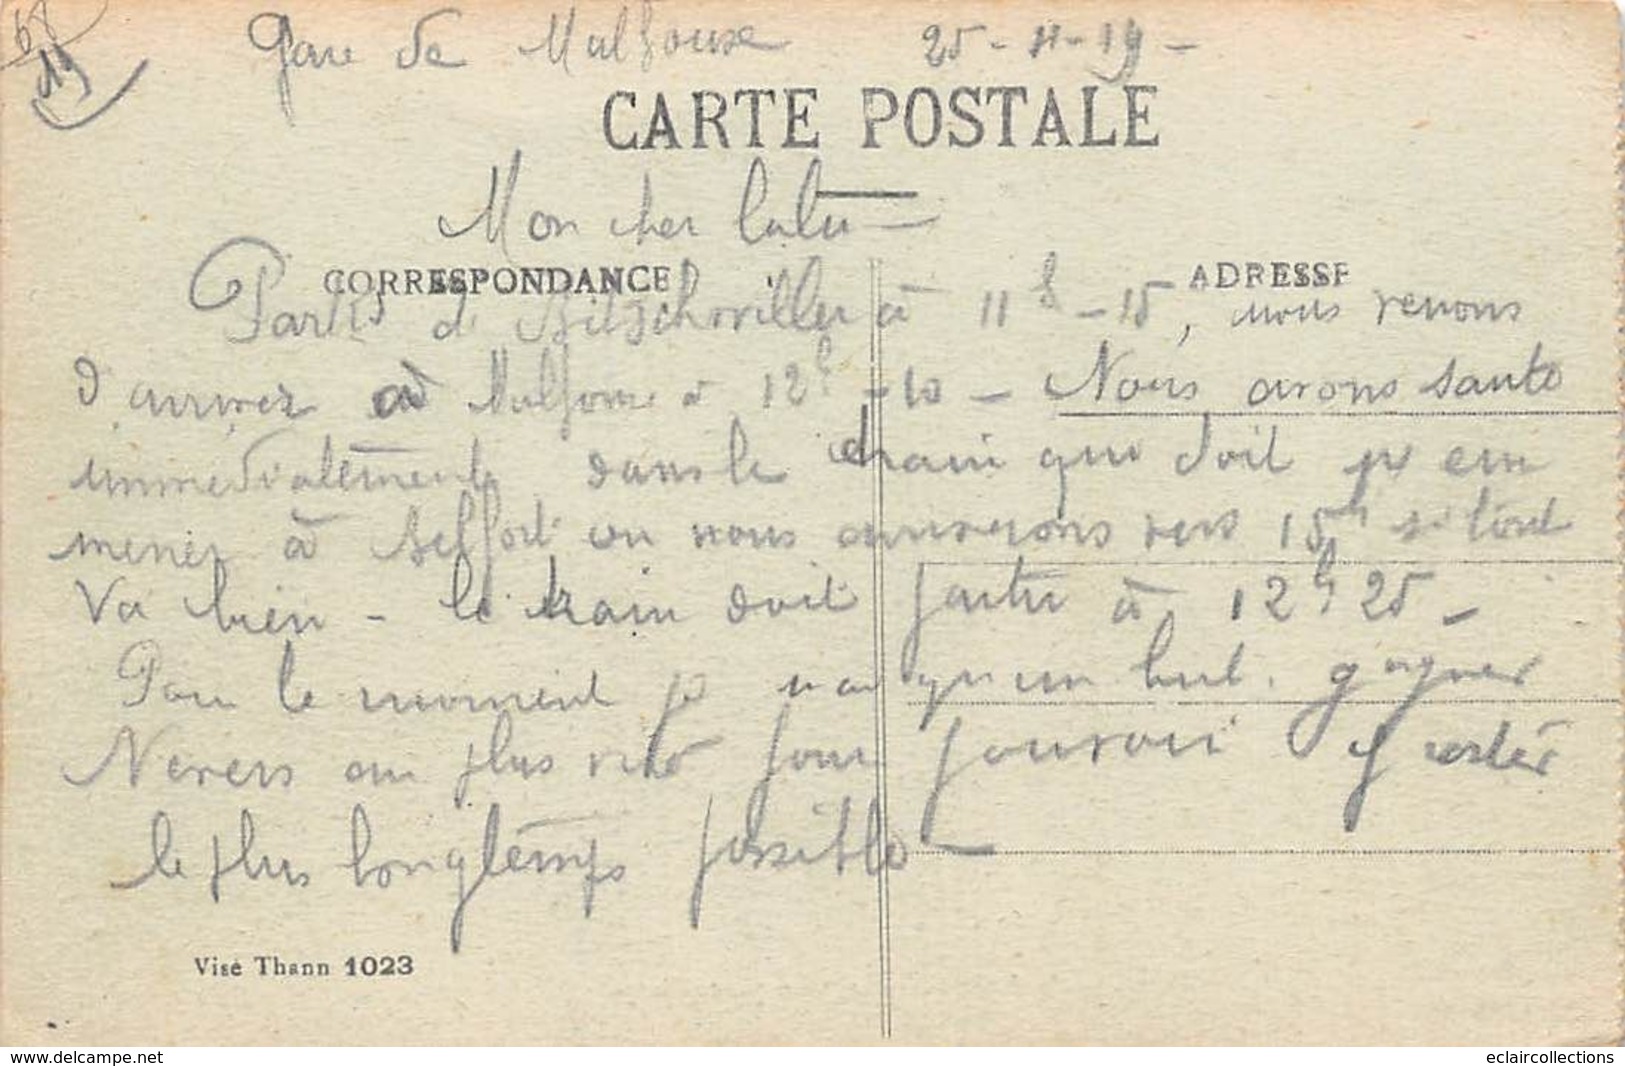 68
19
Gare de Mulhouse 25-11-19-
CARTE POSTALE
Mon cher Lulu
CORRESPONDANCE
ADRESSE
Partis de Bitschwiller à 11h-15, nous venons
d'arriver à Mulhouse à 12h-10 - Nous avons sauté
immédiatement dans le train qui doit n' em
mener à Belfort ou nous arriverons vers 15h si tout
va bien - le train doit partir à 12h25 -
Pour le moment je n'ai qu'un but. gagner
Nevers au plus vite pour pouvoir y rester
le plus longtemps possible -
Visé Thann 1023
www.delcampe.net
eclaircollections